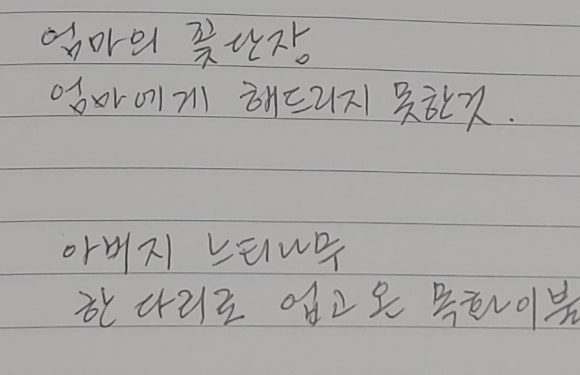 엄마의 꽃단장
엄마에게 해드리지 못한것.
아버지 느티나무
한 다리로 업고 온 목화이불